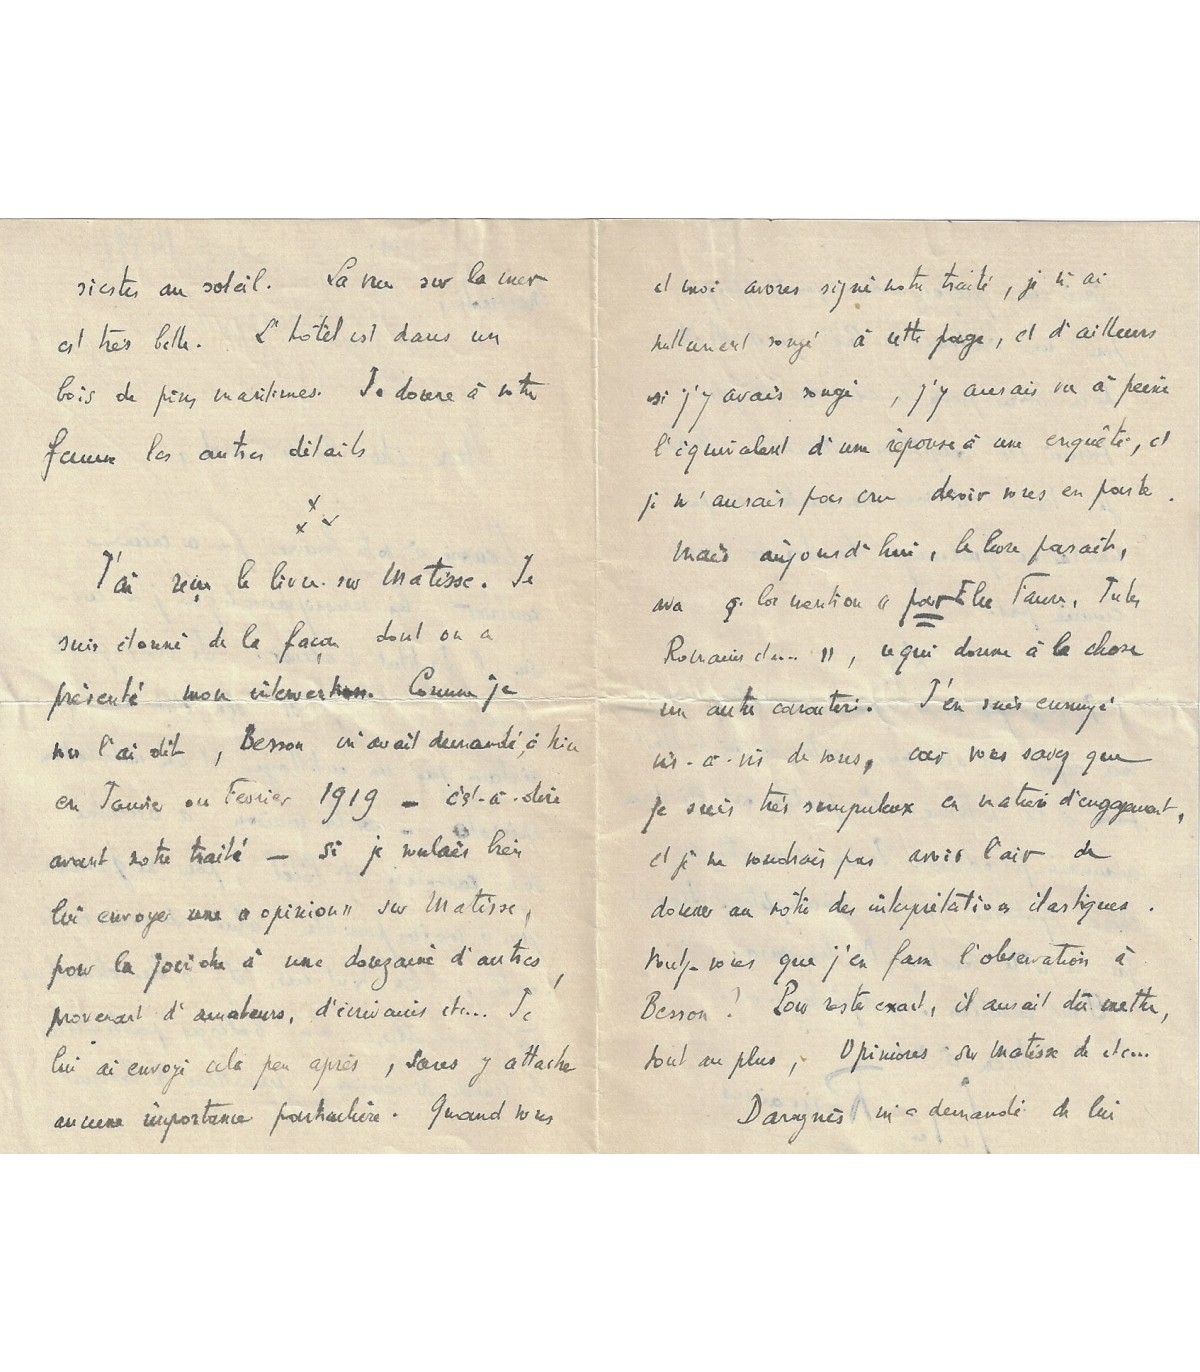 siestes au soleil. La vue sur la mer
est très belle. L'hôtel est dans un
bois de pins maritimes. Je donne à votre
femme les autres détails
x
x x
J'ai reçu le livre sur Matisse. Je
suis étonné de la façon dont on a
présenté mon intervention. Comme je
vous l'ai dit, Besson m'avait demandé, à Nice
en Janvier ou Février 1919 – c'est-à-dire
avant notre traité – si je voulais bien
lui envoyer une « opinion » sur Matisse,
pour la joindre à une douzaine d'autres,
provenant d'amateurs, d'écrivains etc... Je
lui ai envoyé cela peu après, sans y attacher
aucune importance particulière. Quand vous
et moi avons signé notre traité, je n'ai
nullement songé à cette page, et d'ailleurs
si j'y avais songé, j'y aurais vu à peine
l'équivalent d'une réponse à une enquête, et
je n'aurais pas cru devoir vous en parler.
Mais aujourd'hui, le livre paraît,
la mention « par Elie Faure, Jules
Romains etc... », ce qui donne à la chose
un autre caractère. J'en suis ennuyé
vis-à-vis de vous, car vous savez que
je suis très scrupuleux en matière d'engagement,
et je ne voudrais pas avoir l'air de
donner au nôtre des interprétations élastiques.
Voulez-vous que j'en fasse l'observation à
Besson? Pour rester exact, il aurait dû mettre,
tout au plus, Opinions sur Matisse de etc...
Daragnès m'a demandé de lui